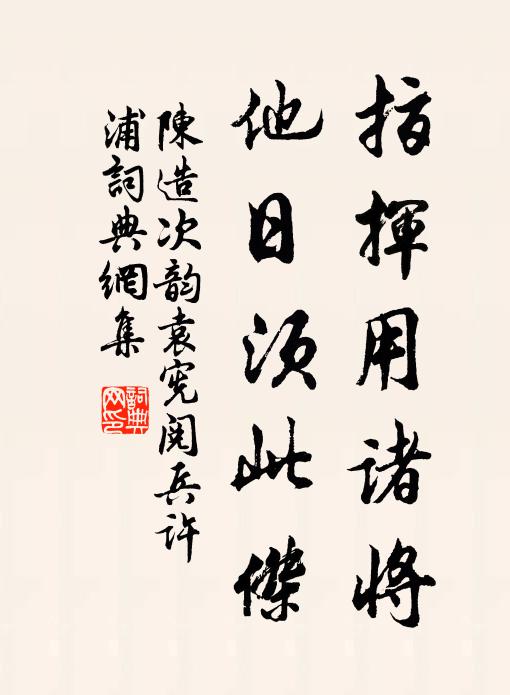 指揮用諸將
他日須此傑
陳造次韵袁宪閱兵许
浦詞典網集
詞典
网印